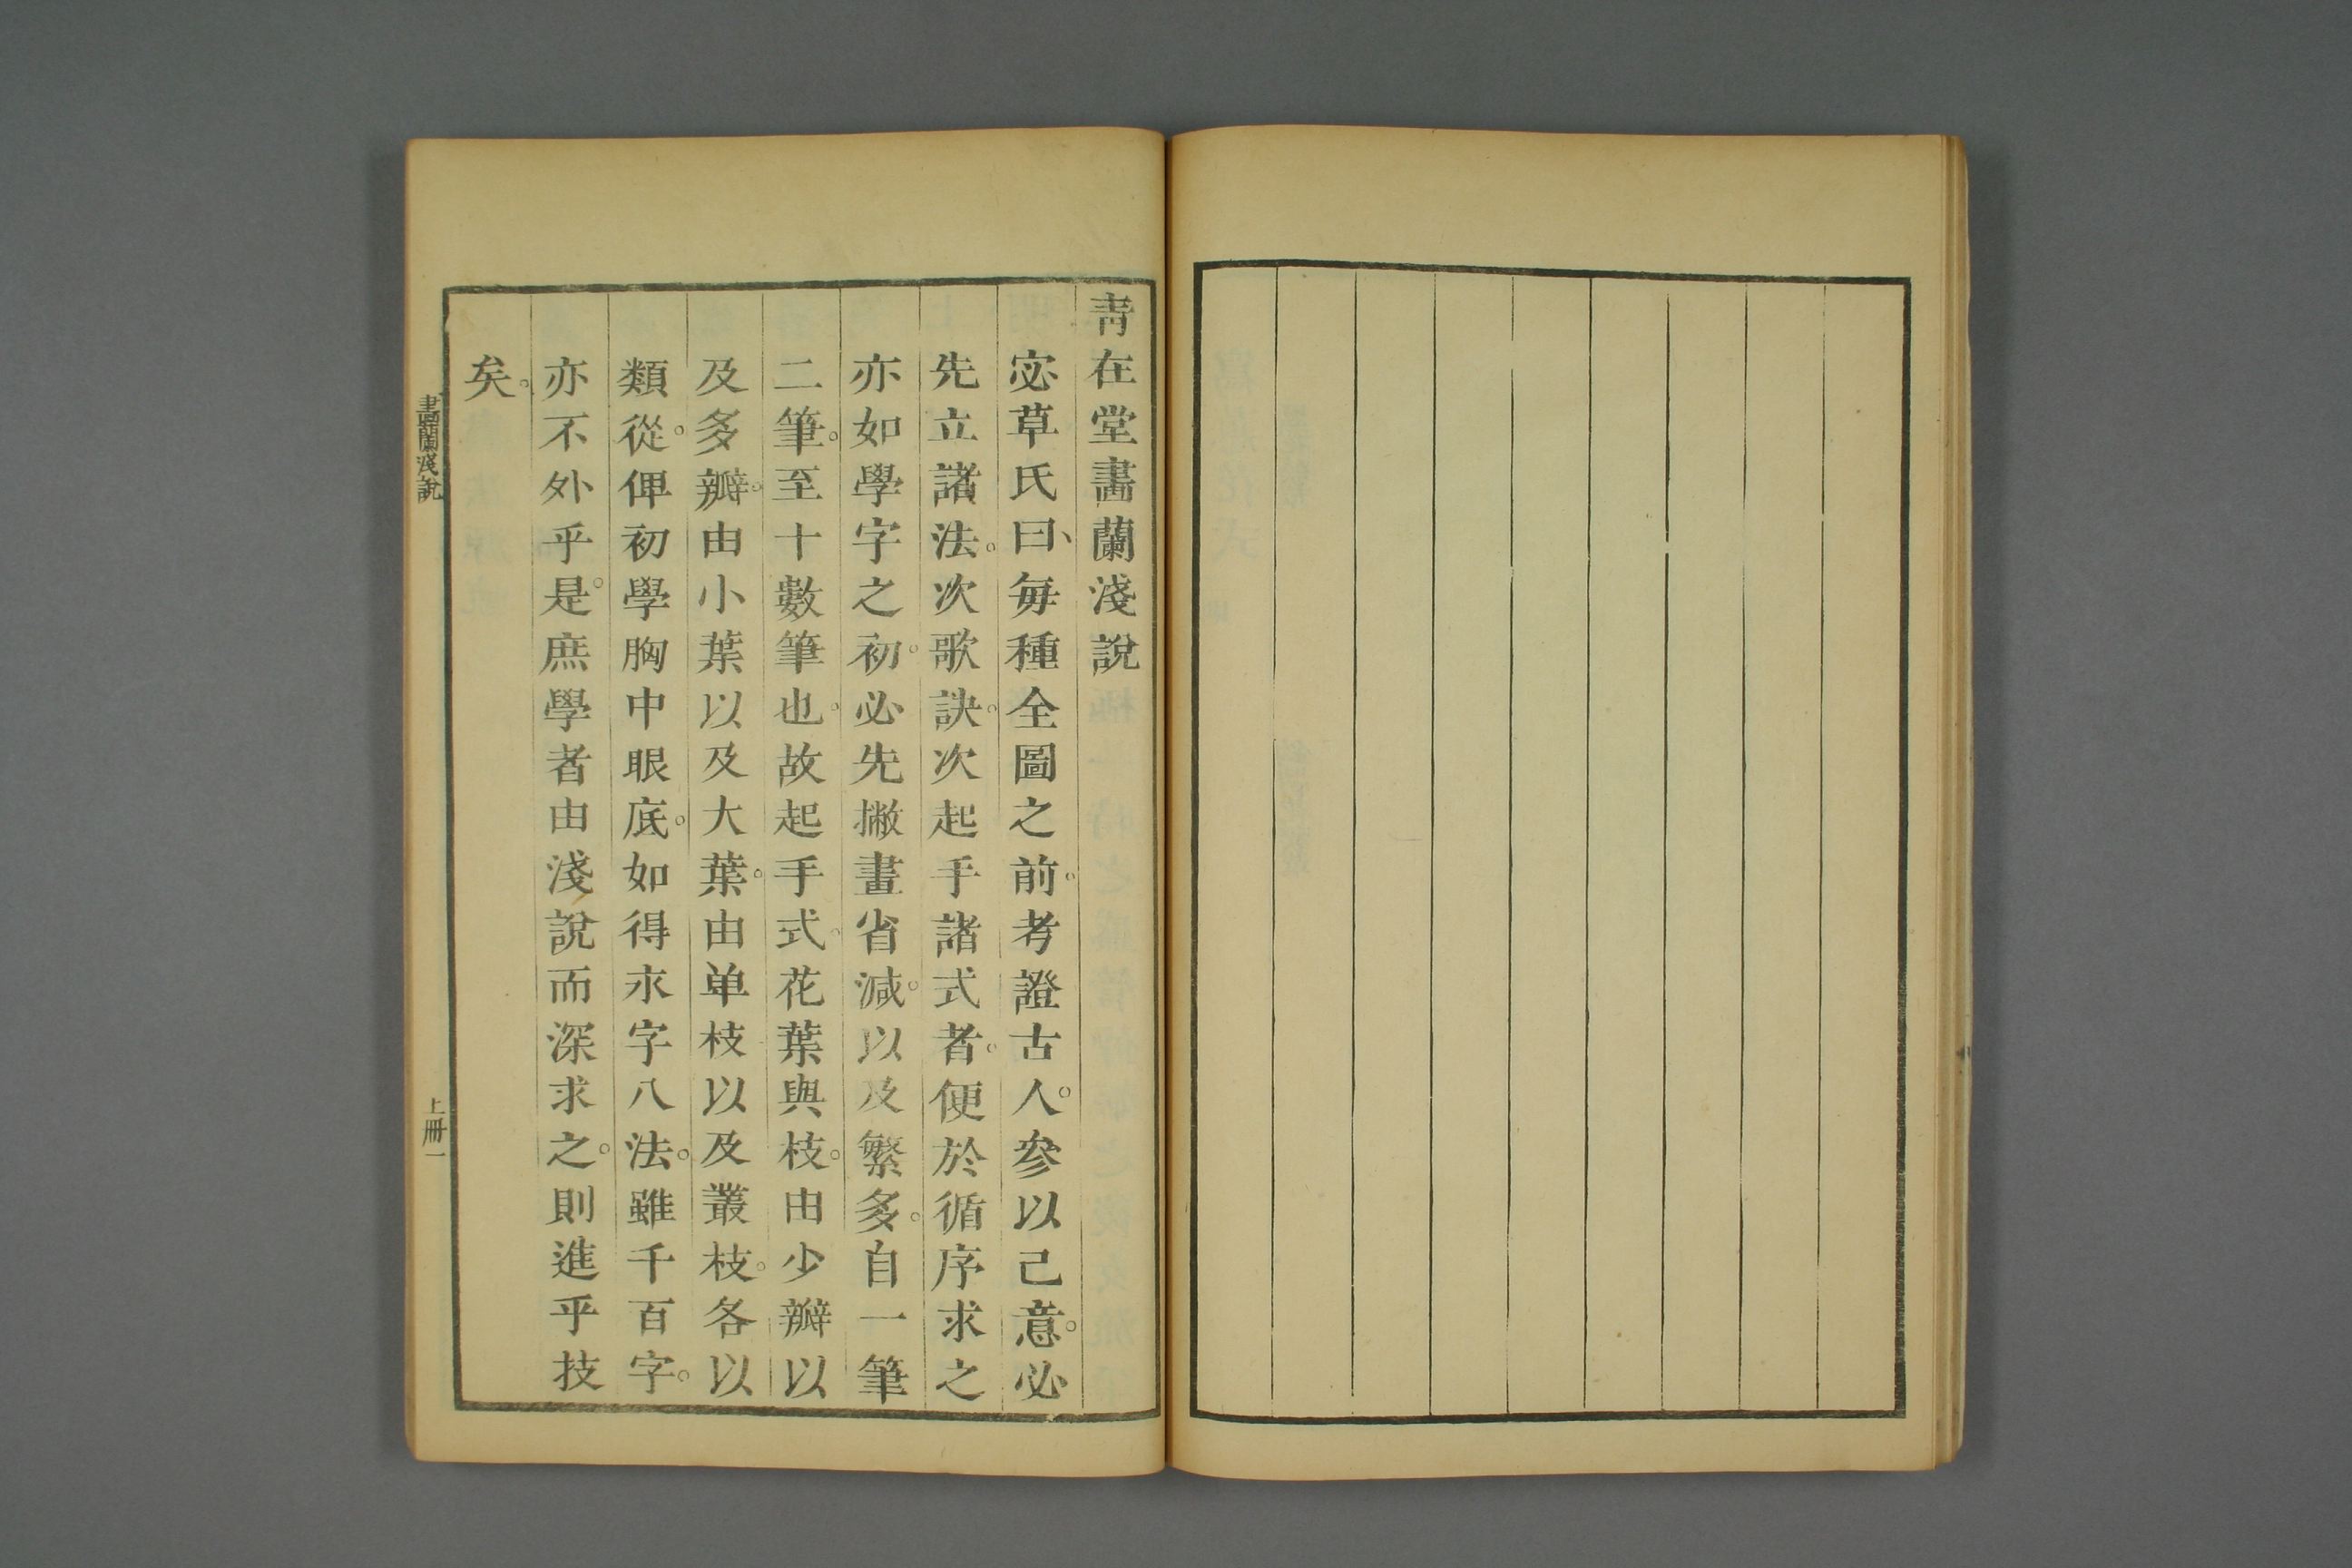 青在堂畫蘭淺說
宓草氏曰、每種全圖之前。考證古人。參以己意。必
先立諸法。次歌訣。次起手諸式者。便於循序求之
亦如學字之初。必先撇畫省減。以及繁多。自一筆
二筆。至十數筆也。故起手式。花葉與枝。由少瓣以
及多瓣。由小葉以及大葉。由单枝以及叢枝。各以
類從。俾初學胸中眼底。如得永字八法。雖千百字。
亦不外乎是。庶學者由淺說而深求之。則進乎技
矣。
畫蘭淺說
上冊一